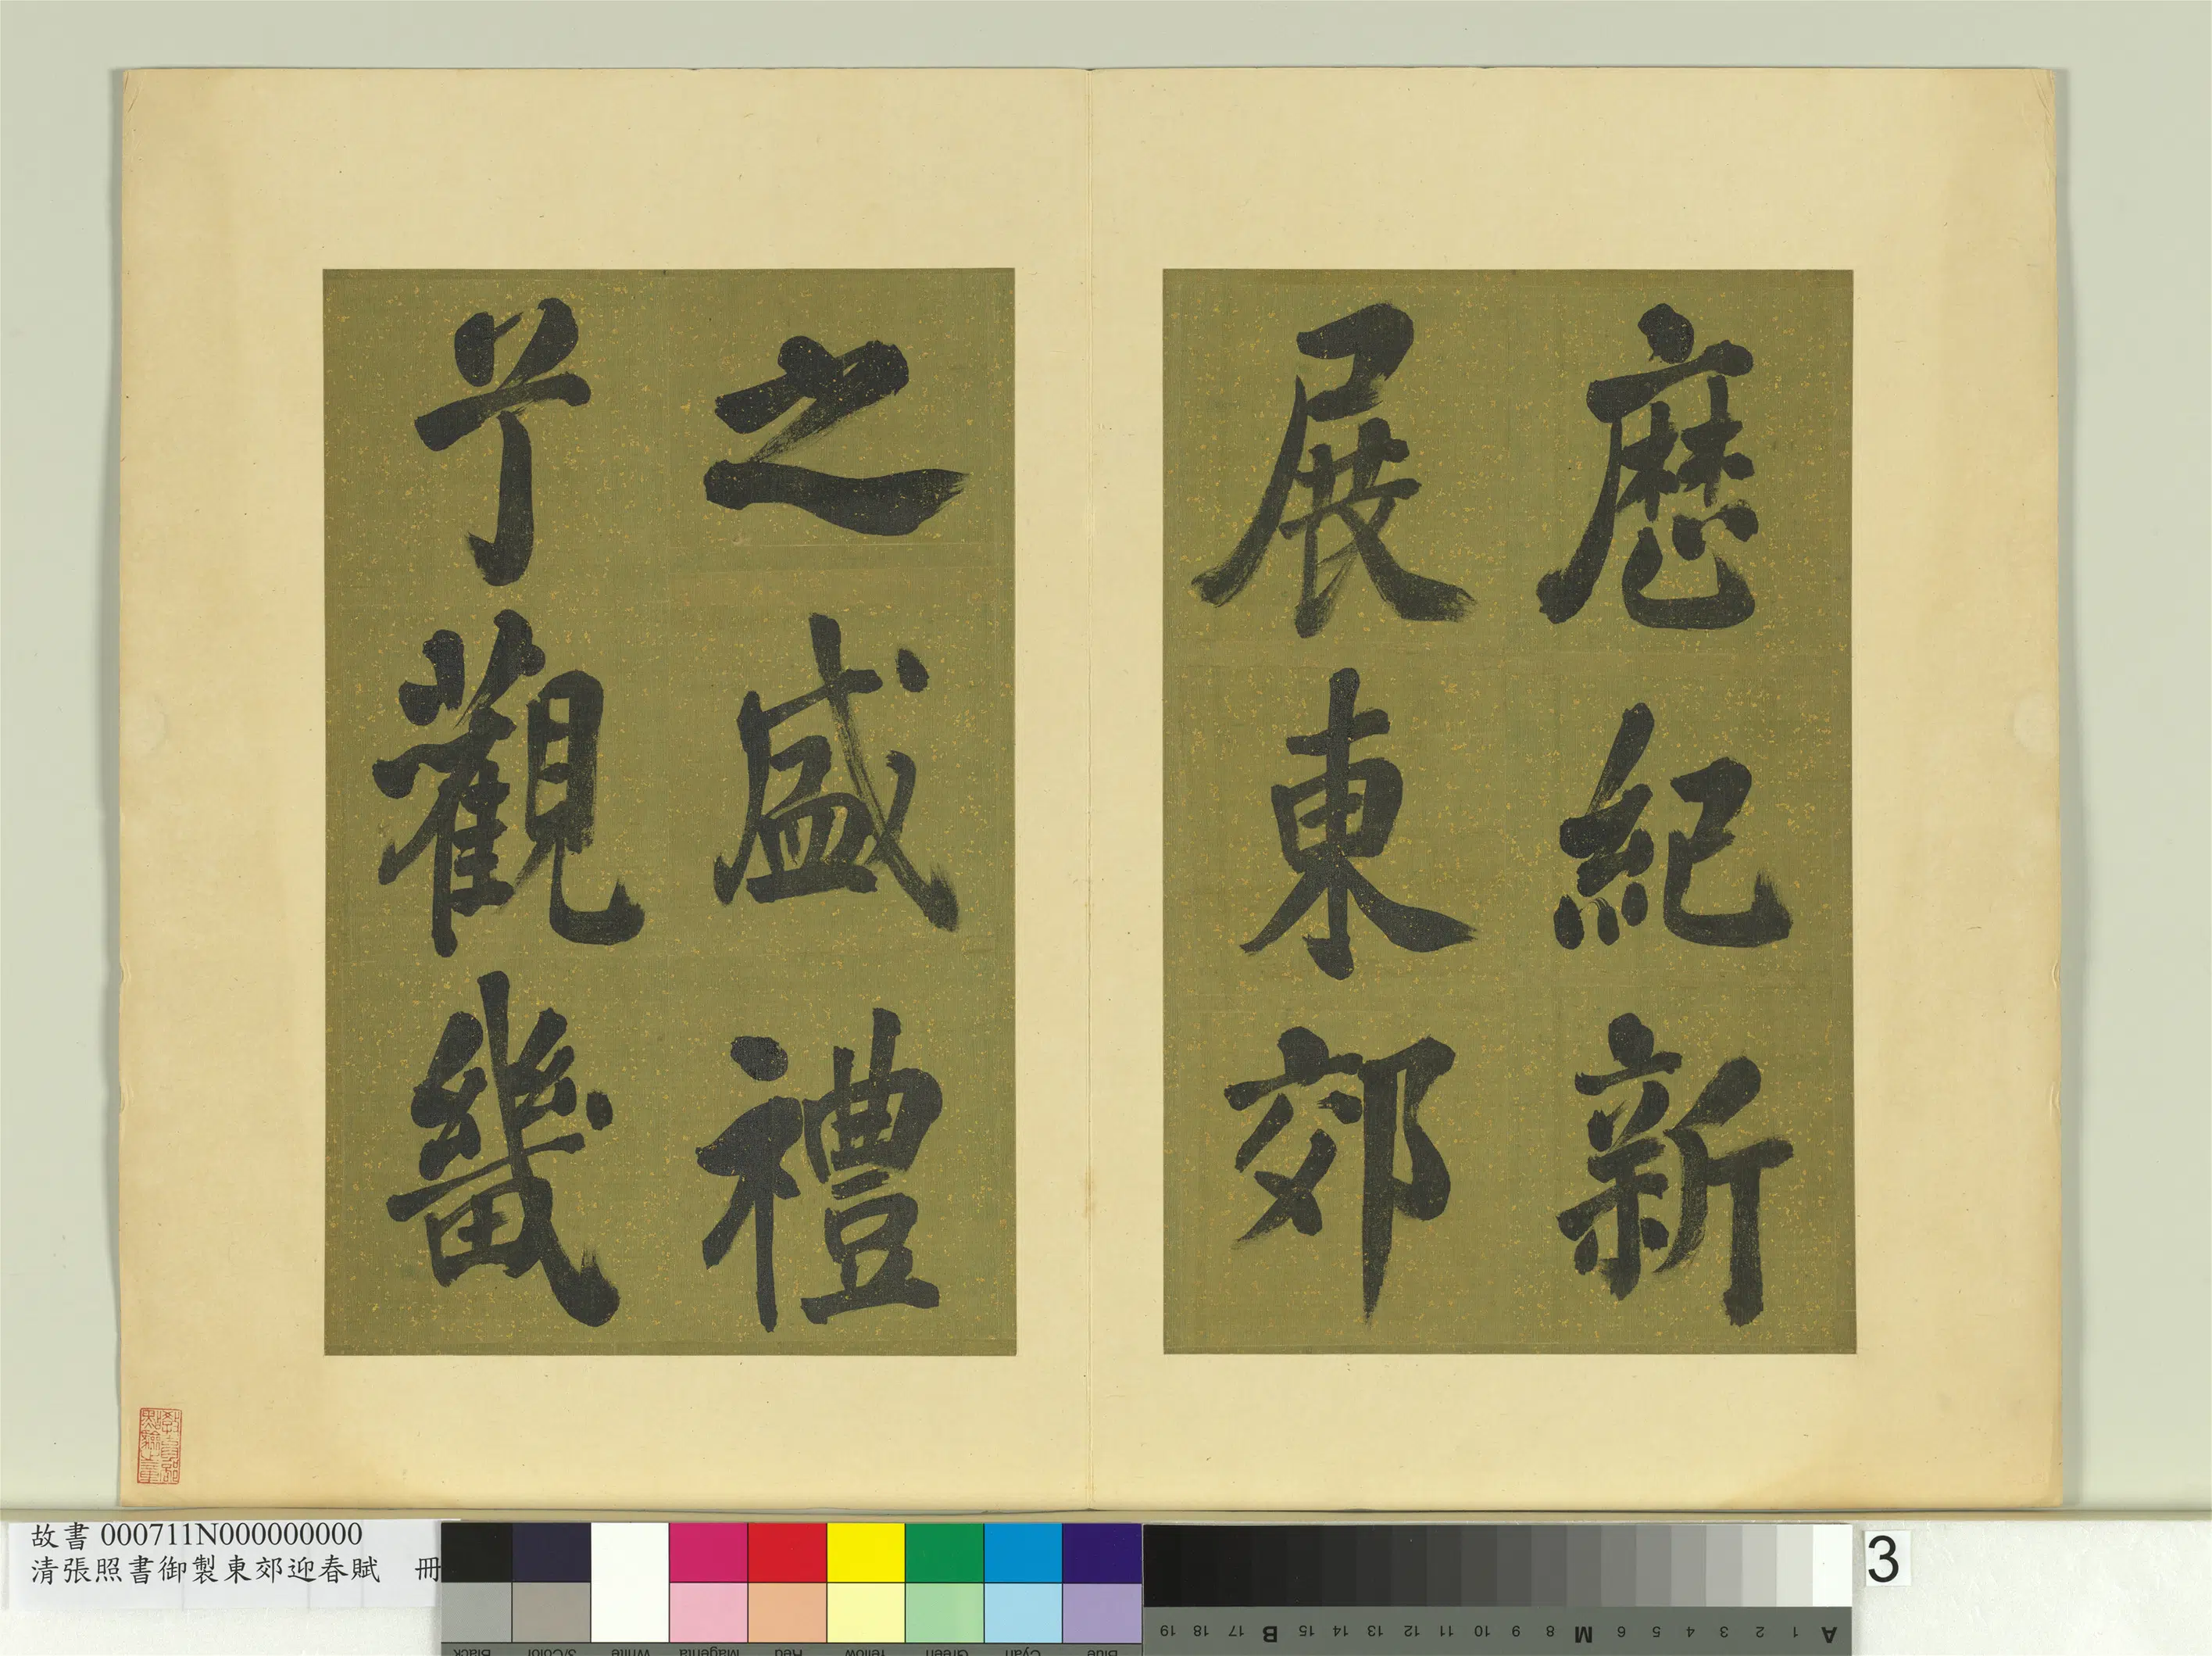 曆紀新
展東郊
之盛禮
兮觀畿
故書 000711N000000000
清張照書御製東郊迎春賦 冊
3
Black
3/Color
White
Magenta
Red
Yellow
Green
Cyan
Blue
A 1 2 3 4 5 6 M 8 9 10 11 12 13 14 15 B 17 18 19